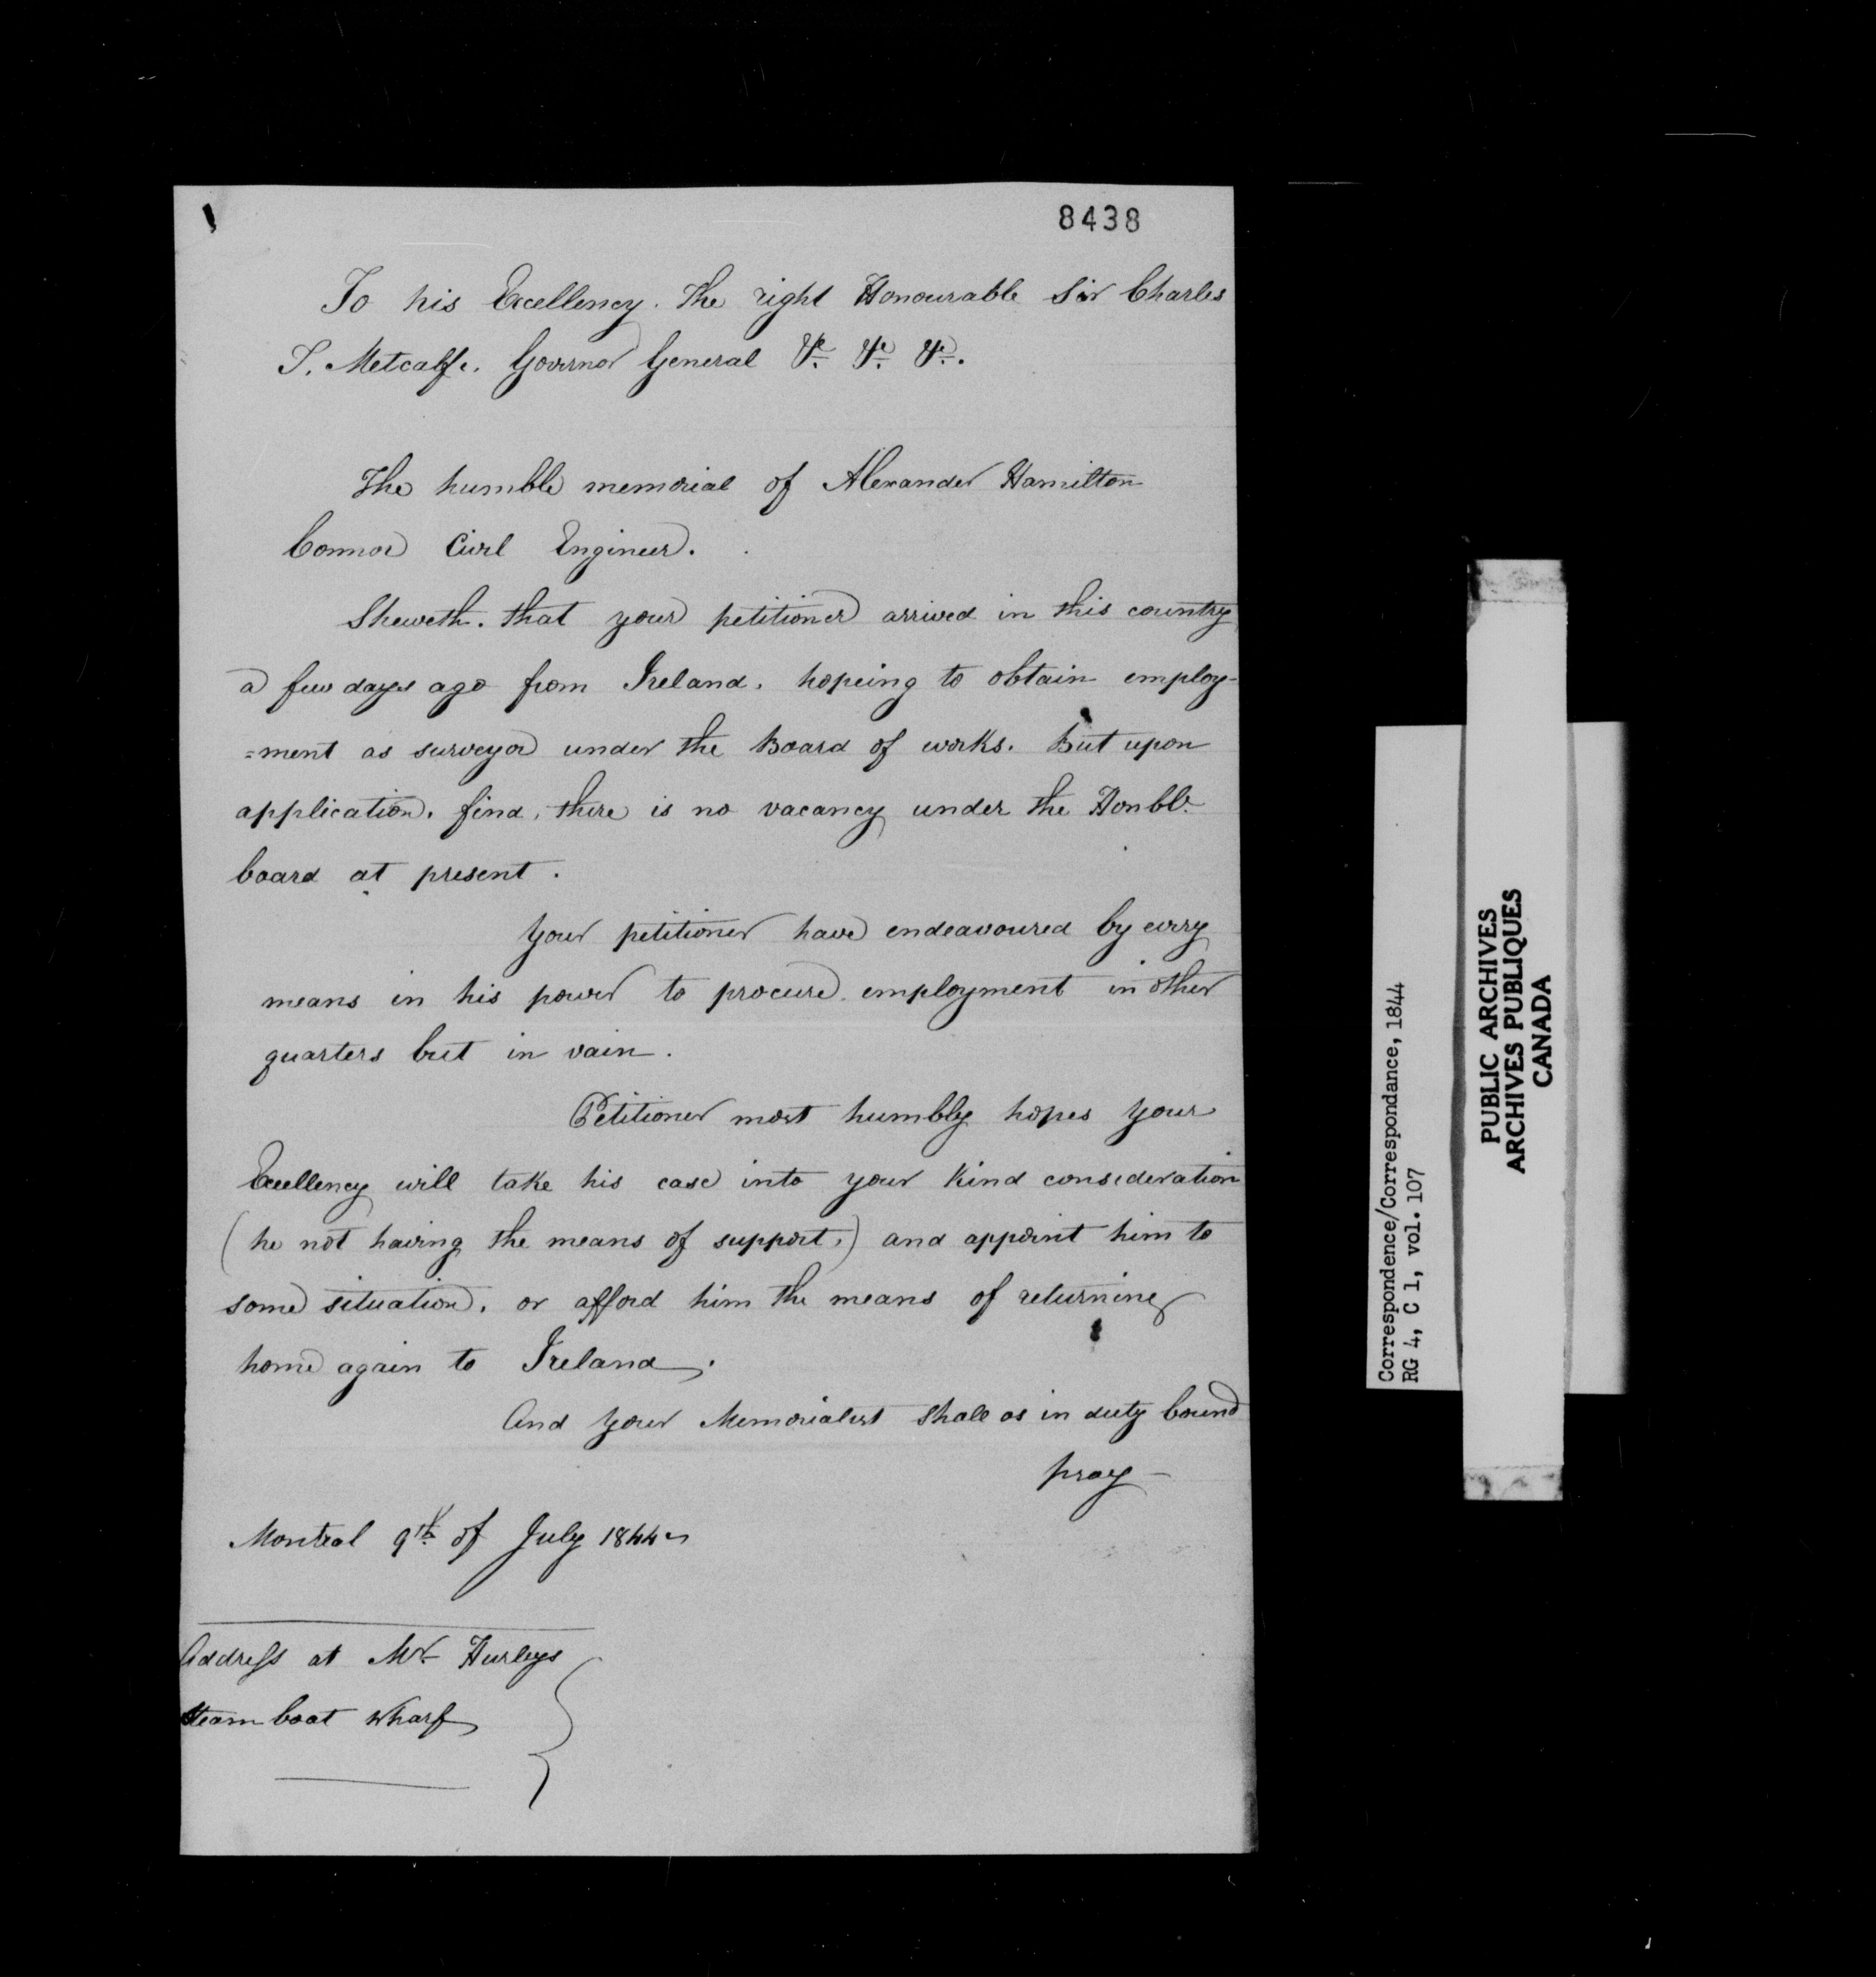 8438
To his Excellency. The right Honourable Sir Charles
T. Metcalfe. Governor General &c. &c. &c.
The humble memorial of Alexander Hamilton
Connor Civil Engineer.
Sheweth. that your petitioner arrived in this country
a few days ago from Ireland. hopeing to obtain employ-
=ment as surveyor under the Board of works. But upon
application. find, there is no vacancy under the Honble.
board at present.
Your petitioner have endeavoured by every
means in his power to procure employment in other
quarters but in vain.
Petitioner most humbly hopes your
Excellency will take his case into your kind consideration
(he not having the means of support.) and appoint him to
some situation. or afford him the means of returning
home again to Ireland.
And your Memorialist shall as in duty bound
pray —
Montreal 9th of July 1844
Address at Mr Hurleys
Steam boat wharf
Correspondence/Correspondance, 1844
RG 4, C 1, vol. 107
PUBLIC ARCHIVES
ARCHIVES PUBLIQUES
CANADA